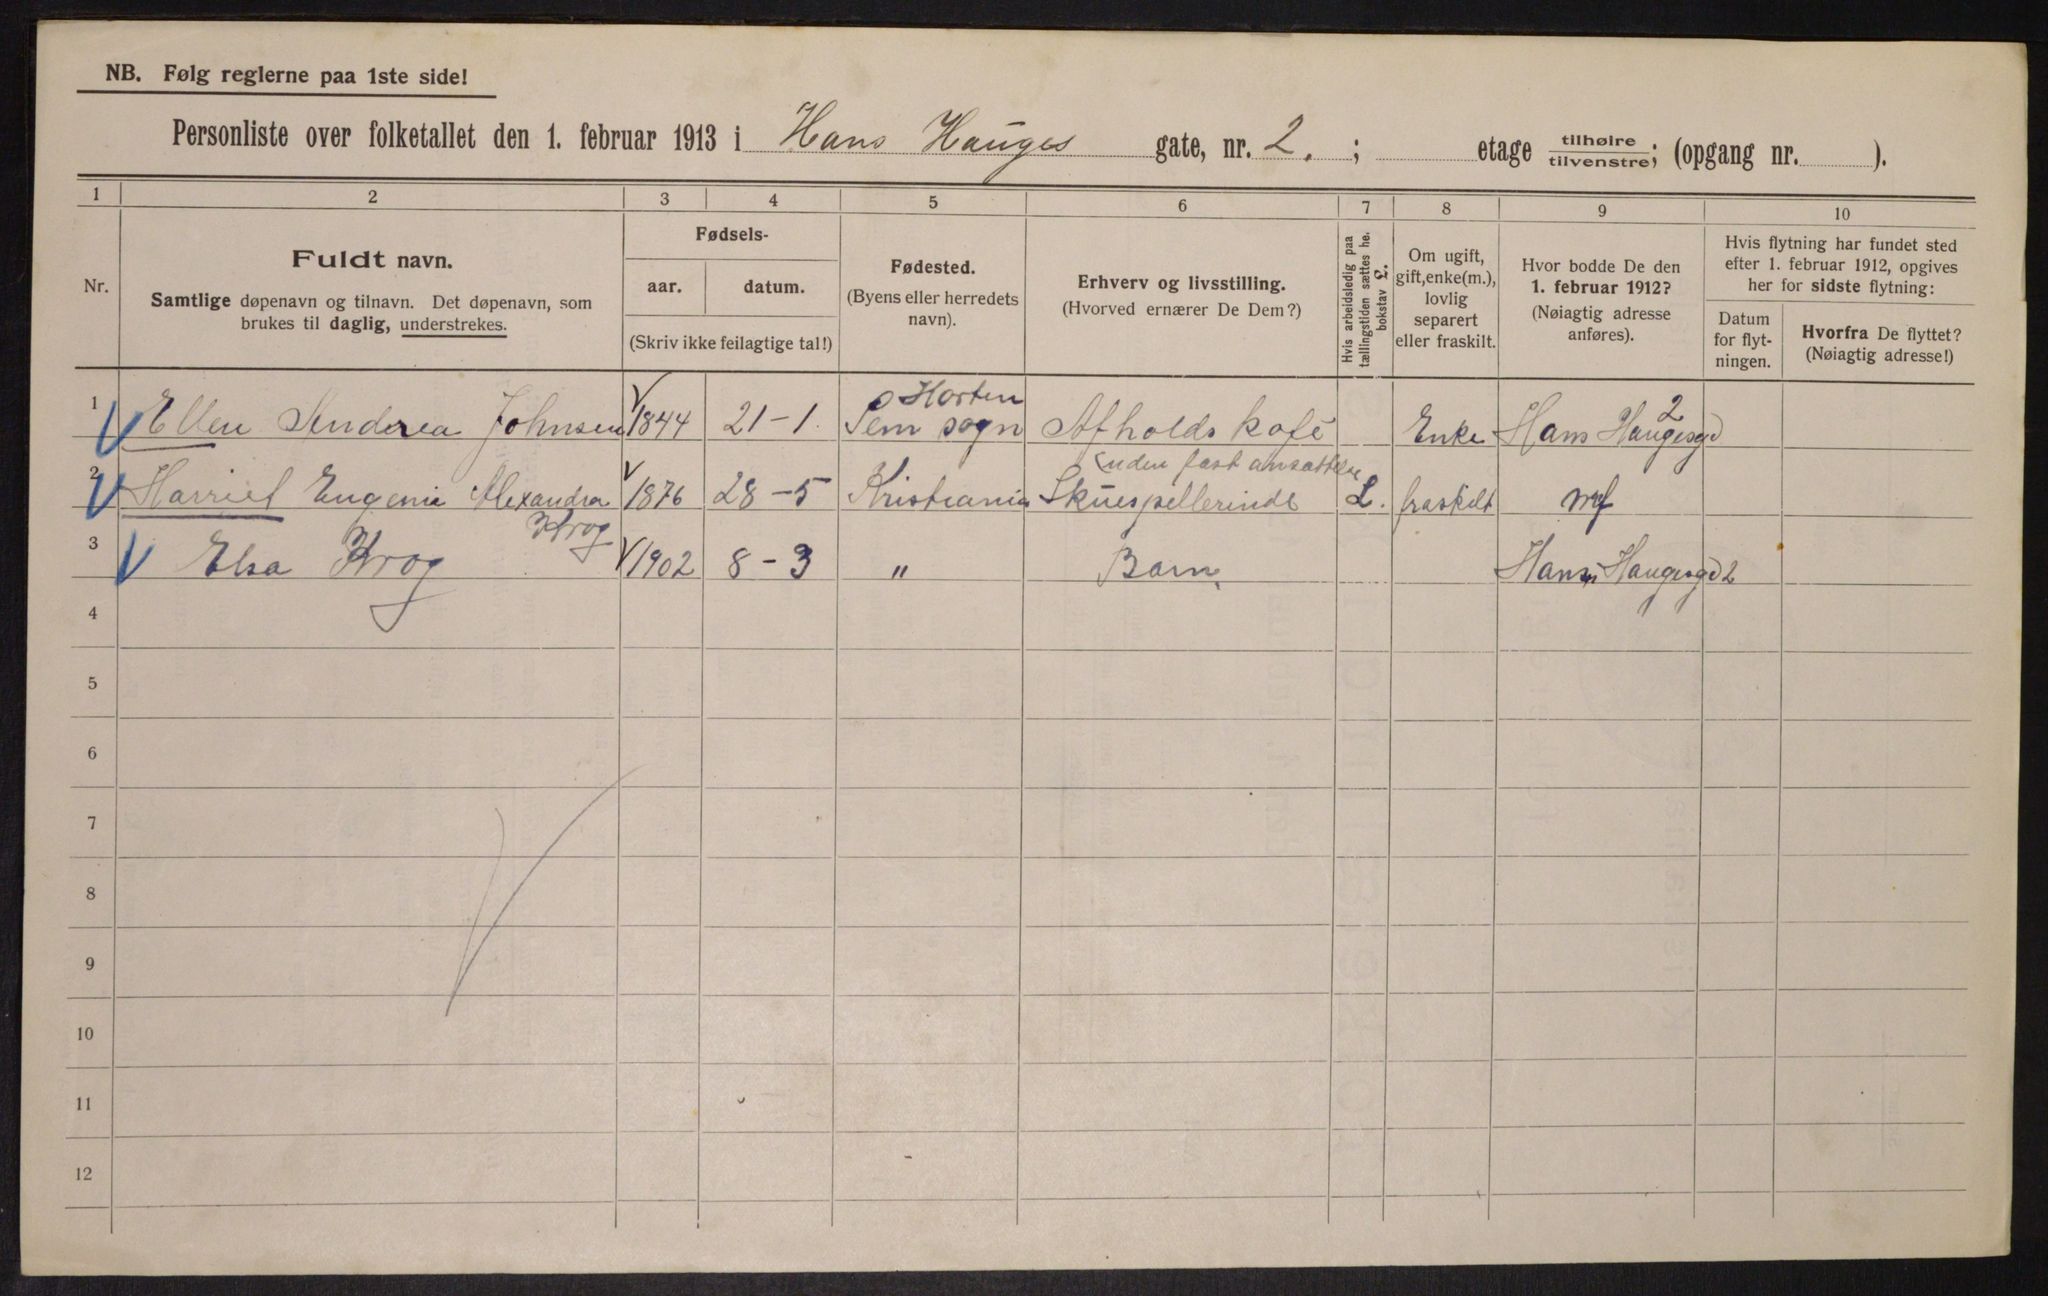 NB. Følg reglerne paa 1ste side!
Personliste over folketallet den 1. februar 1913 i Hans Hauges gate, nr. 2. ; etage tilhøire/tilvenstre; (opgang nr. ).
1 2 3 4 5 6 7 8 9 10
Nr.
Fuldt navn.
Samtlige døpenavn og tilnavn. Det døpenavn, som
brukes til daglig, understrekes.
Fødsels-
aar. datum.
(Skriv ikke feilagtige tal!)
Fødested.
(Byens eller herredets
navn).
Erhverv og livsstilling.
(Hvorved ernærer De Dem?)
Hvis arbeidsledig paa
tællingstiden sættes he.
bokstav £.
Om ugift,
gift, enke(m.),
lovlig
separert
eller fraskilt.
Hvor bodde De den
1. februar 1912?
(Nøiagtig adresse
anføres).
Hvis flytning har fundet sted
efter 1. februar 1912, opgives
her for sidste flytning:
Datum
for flyt-
ningen.
Hvorfra De flyttet?
(Nøiagtig adresse!)
Horten 2
1 Ellen Andrea Johnsen 1844 21-1. Sem sogn Afholds kafé Enke Hans Haugesgd
uden fast ansættelse
2 Harriet Eugenie Alexandra 1876 28-5 Kristiania Skuespellerinde L. fraskilt
Krog
3 Elsa Krog 1902 8-3 " Barn. Hans Haugesgd 2
4
5
6
7
8
9
10
11
12